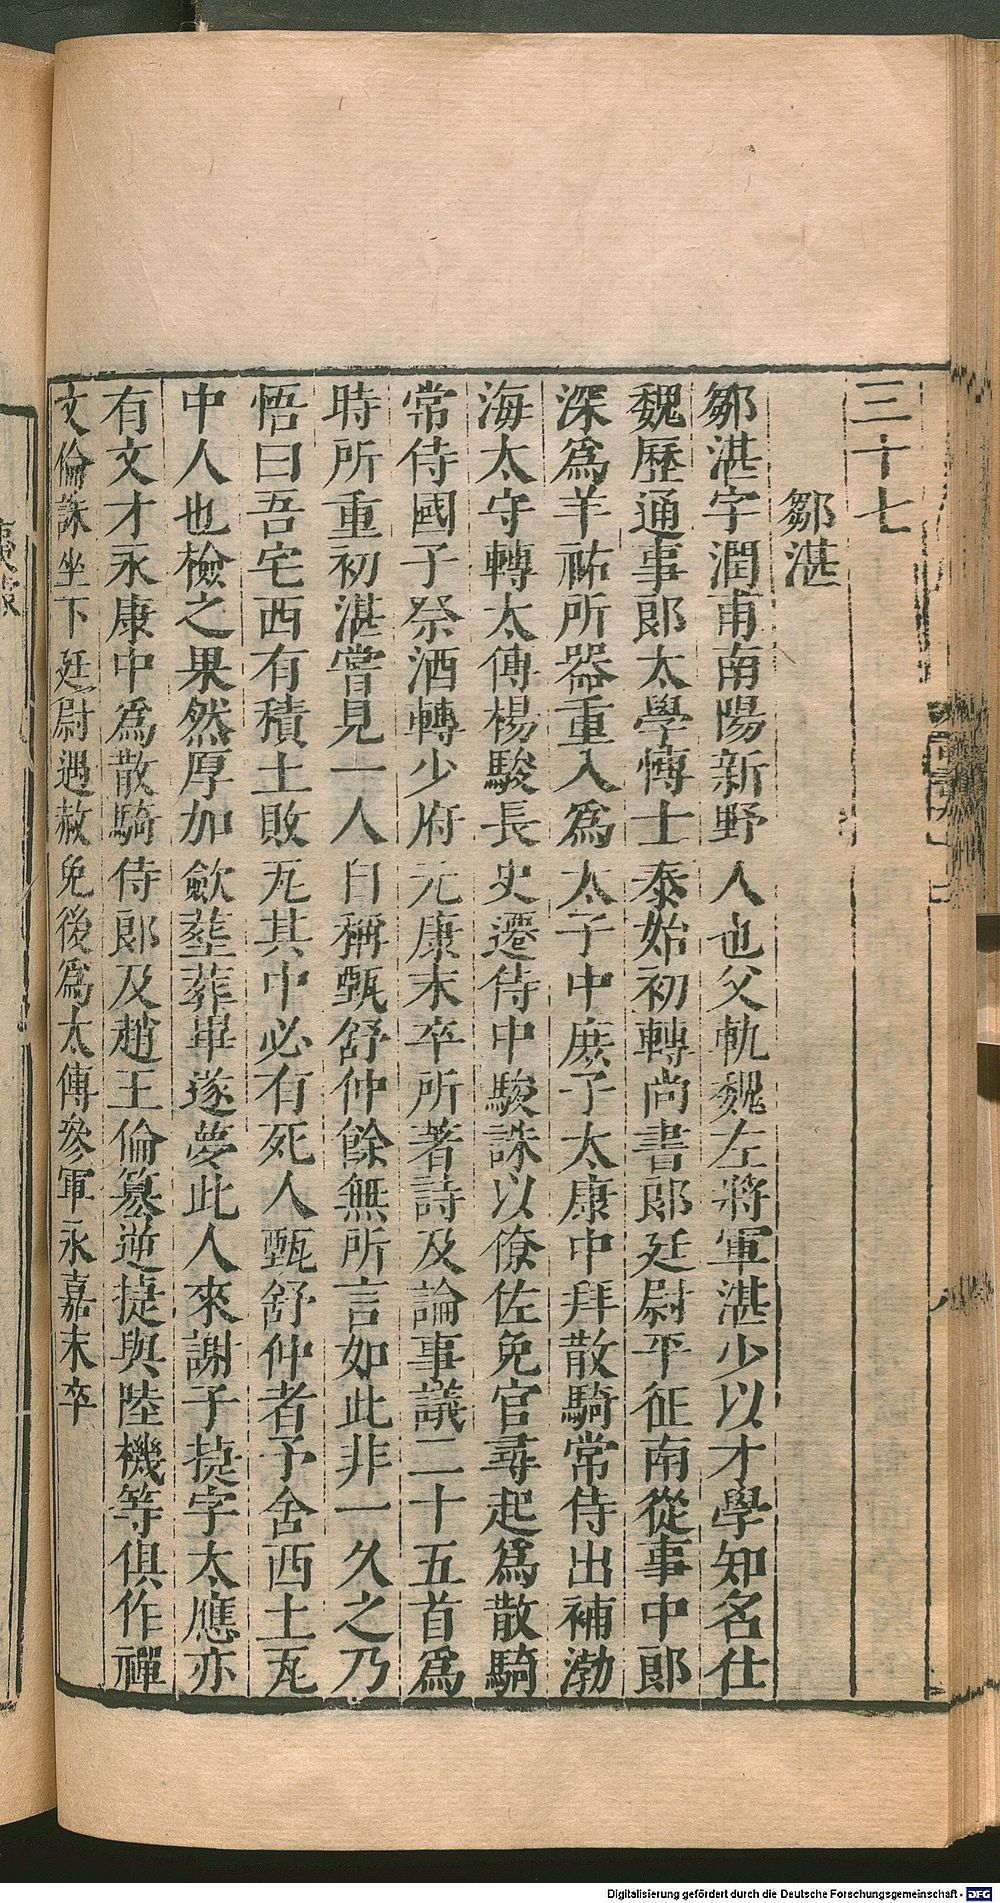 三十七
鄒湛
鄒湛字潤甫南陽新野人也父軌魏左將軍湛少以才學知名仕
魏歷通事郎太學博士泰始初轉尚書郎廷尉平征南從事中郎
深爲羊祐所器重入爲太子中庶子太康中拜散騎常侍出補渤
海太守轉太傅楊駿長史遷侍中駿誅以僚佐免官尋起爲散騎
常侍國子祭酒轉少府元康末卒所著詩及論事議二十五首爲
時所重初湛嘗見一人自稱甄舒仲餘無所言如此非一久之乃
悟曰吾宅西有積土敗瓦其中必有死人甄舒仲者予舍西土瓦
中人也檢之果然厚加歛塟葬畢遂夢此人來謝子捷字太應亦
有文才永康中爲散騎侍郎及趙王倫篡逆捷與陸機等俱作禪
文倫誅坐下廷尉遇赦免後爲太傅參軍永嘉末卒
Digitalisierung gefördert durch die Deutsche Forschungsgemeinschaft - DFG